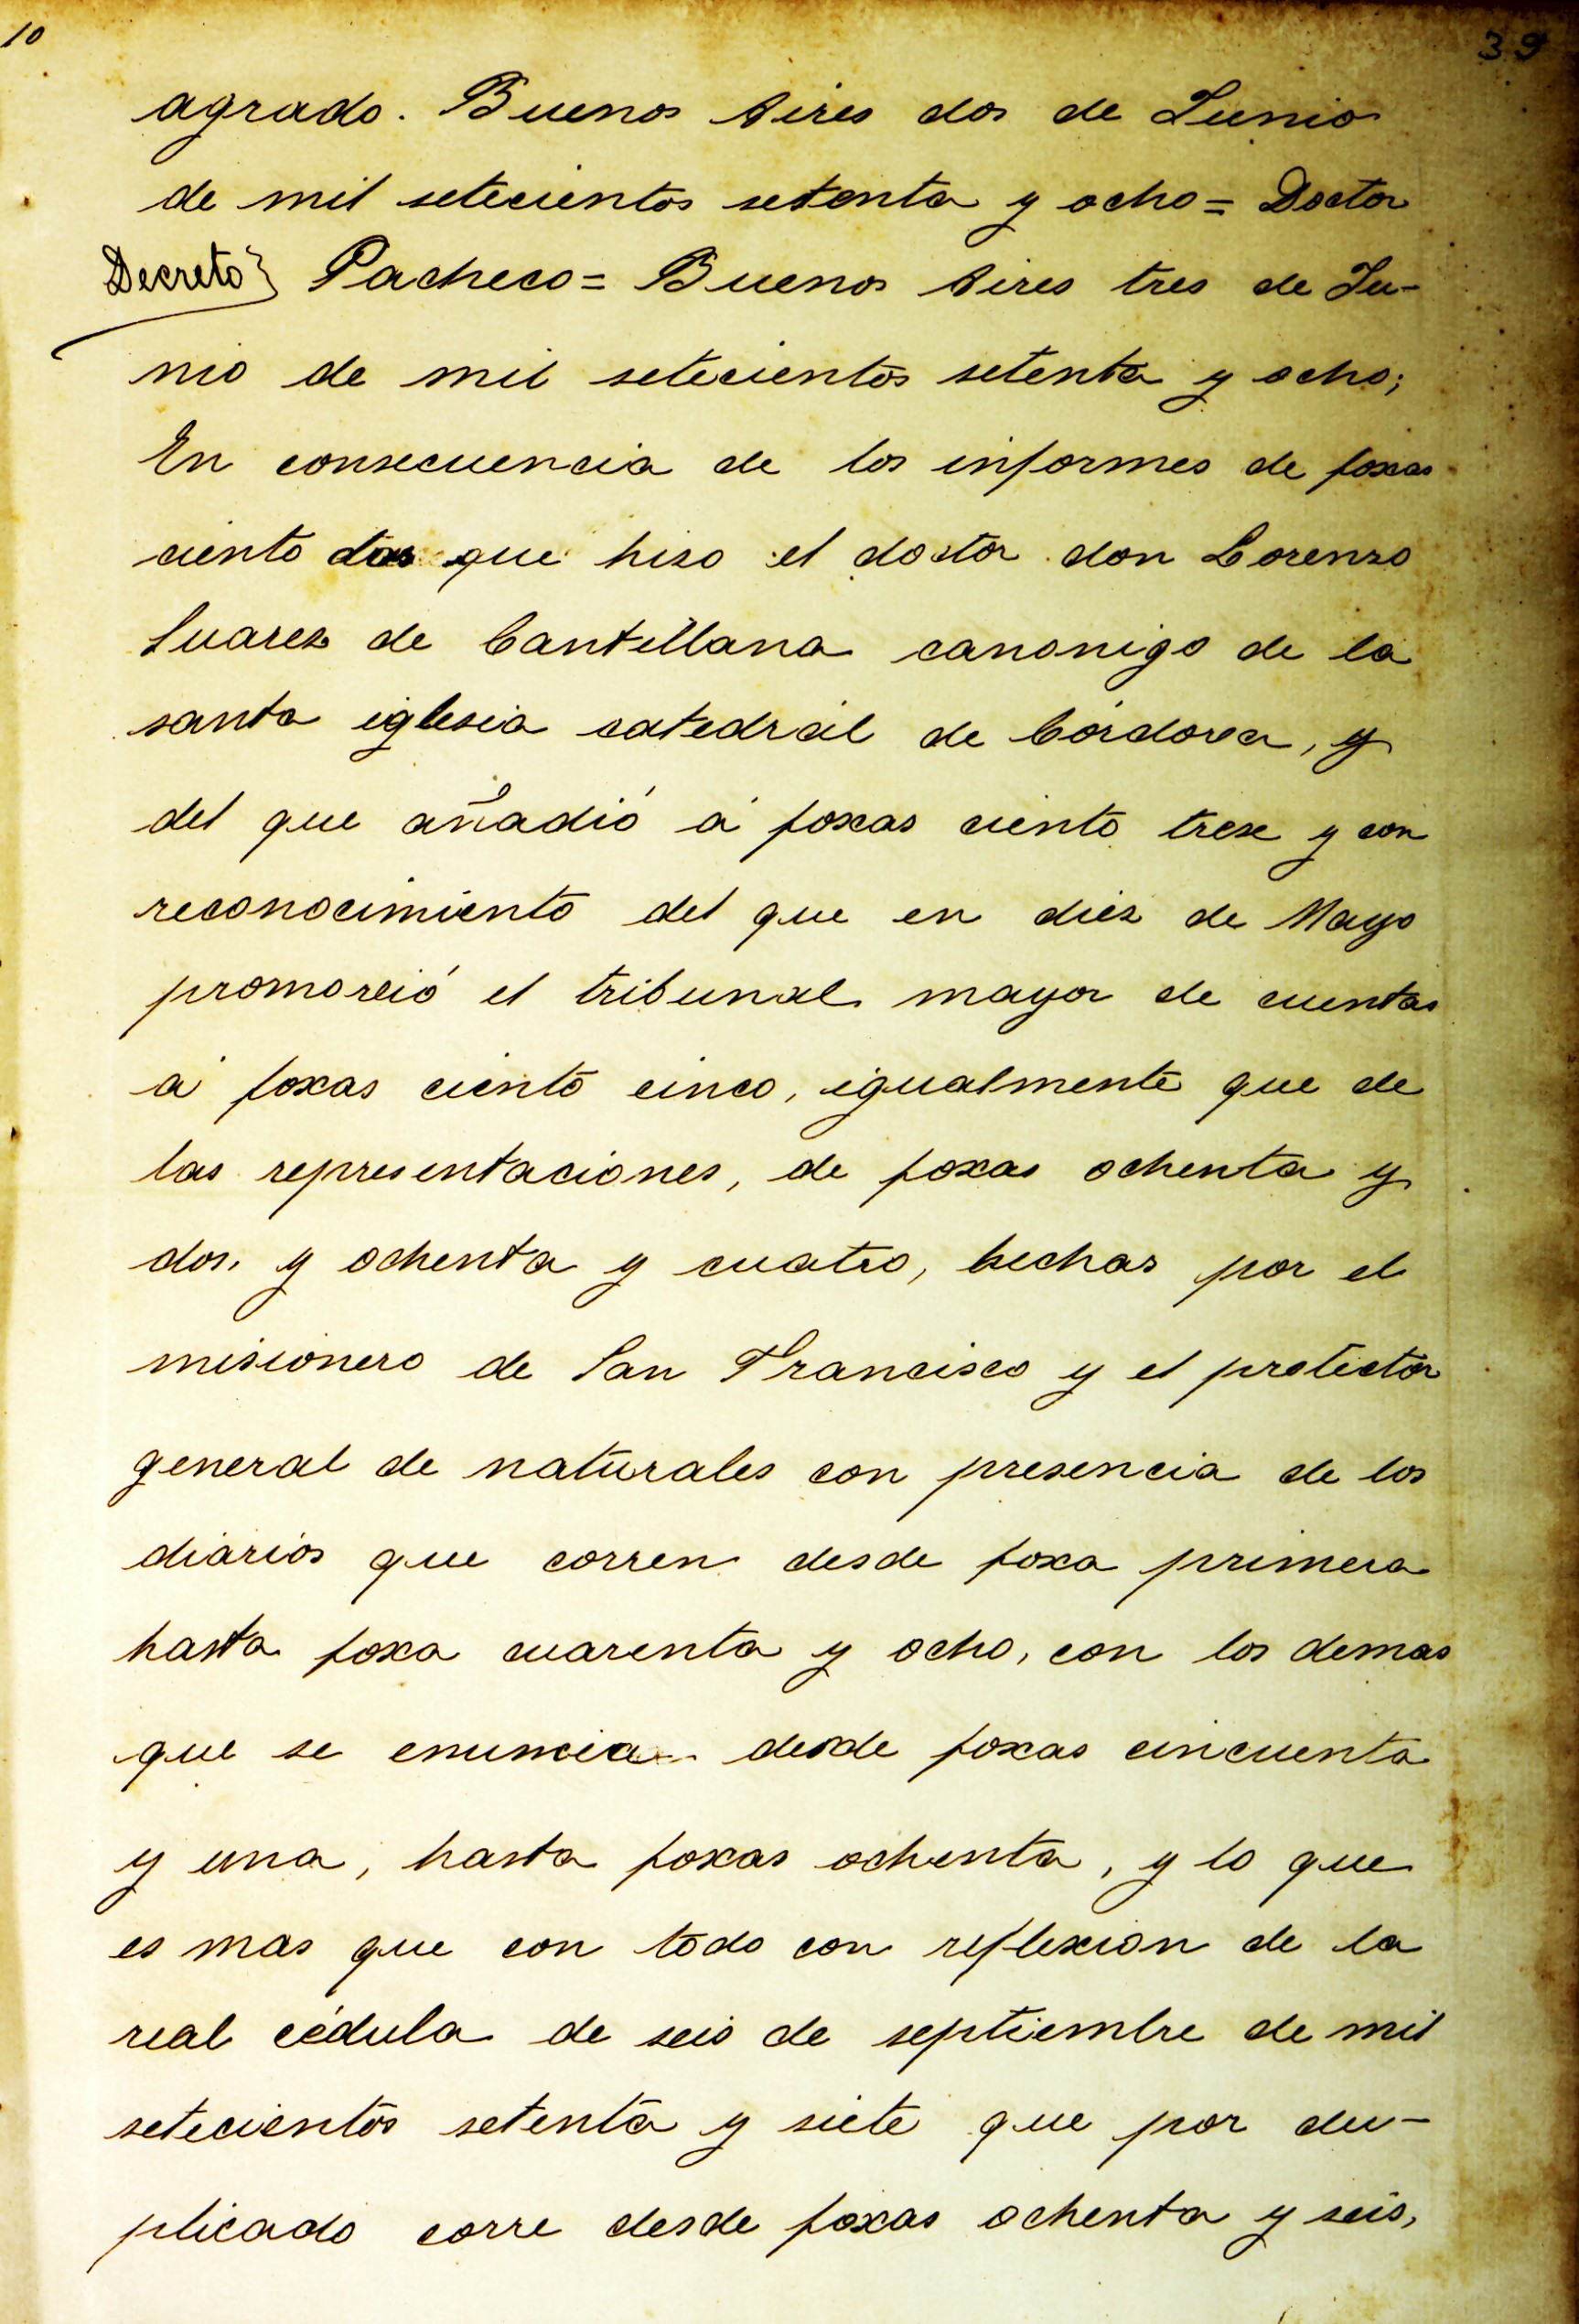 10
39
agrado. Buenos Aires dos de Junio
de mil setecientos setenta y ocho= Doctor
Decreto} Pacheco= Buenos Aires tres de Ju-
nio de mil setecientos setenta y ocho;
En consecuencia de los informes de foxas
ciento dos que hiso el doctor don Lorenzo
Suarez de Cantillana canonigo de la
santa iglesia catedrál de Córdova, y
del que añadió á foxas ciento trese y con
reconocimiento del que en diez de Mayo
promovió el tribunal mayor de cuentas
á foxas ciento cinco, igualmente que de
las representaciones, de foxas ochenta y
dos, y ochenta y cuatro, hechas por el
misionero de San Francisco y el protector
general de naturales con presencia de los
diarios que corren desde foxa primera
hasta foxa cuarenta y ocho, con los demas
que se enuncia desde foxas cincuenta
y una, hasta foxas ochenta, y lo que
es mas que con todo con reflexion de la
real cédula de seis de septiembre de mil
setecientos setenta y siete que por du-
plicado corre desde foxas ochenta y seis,